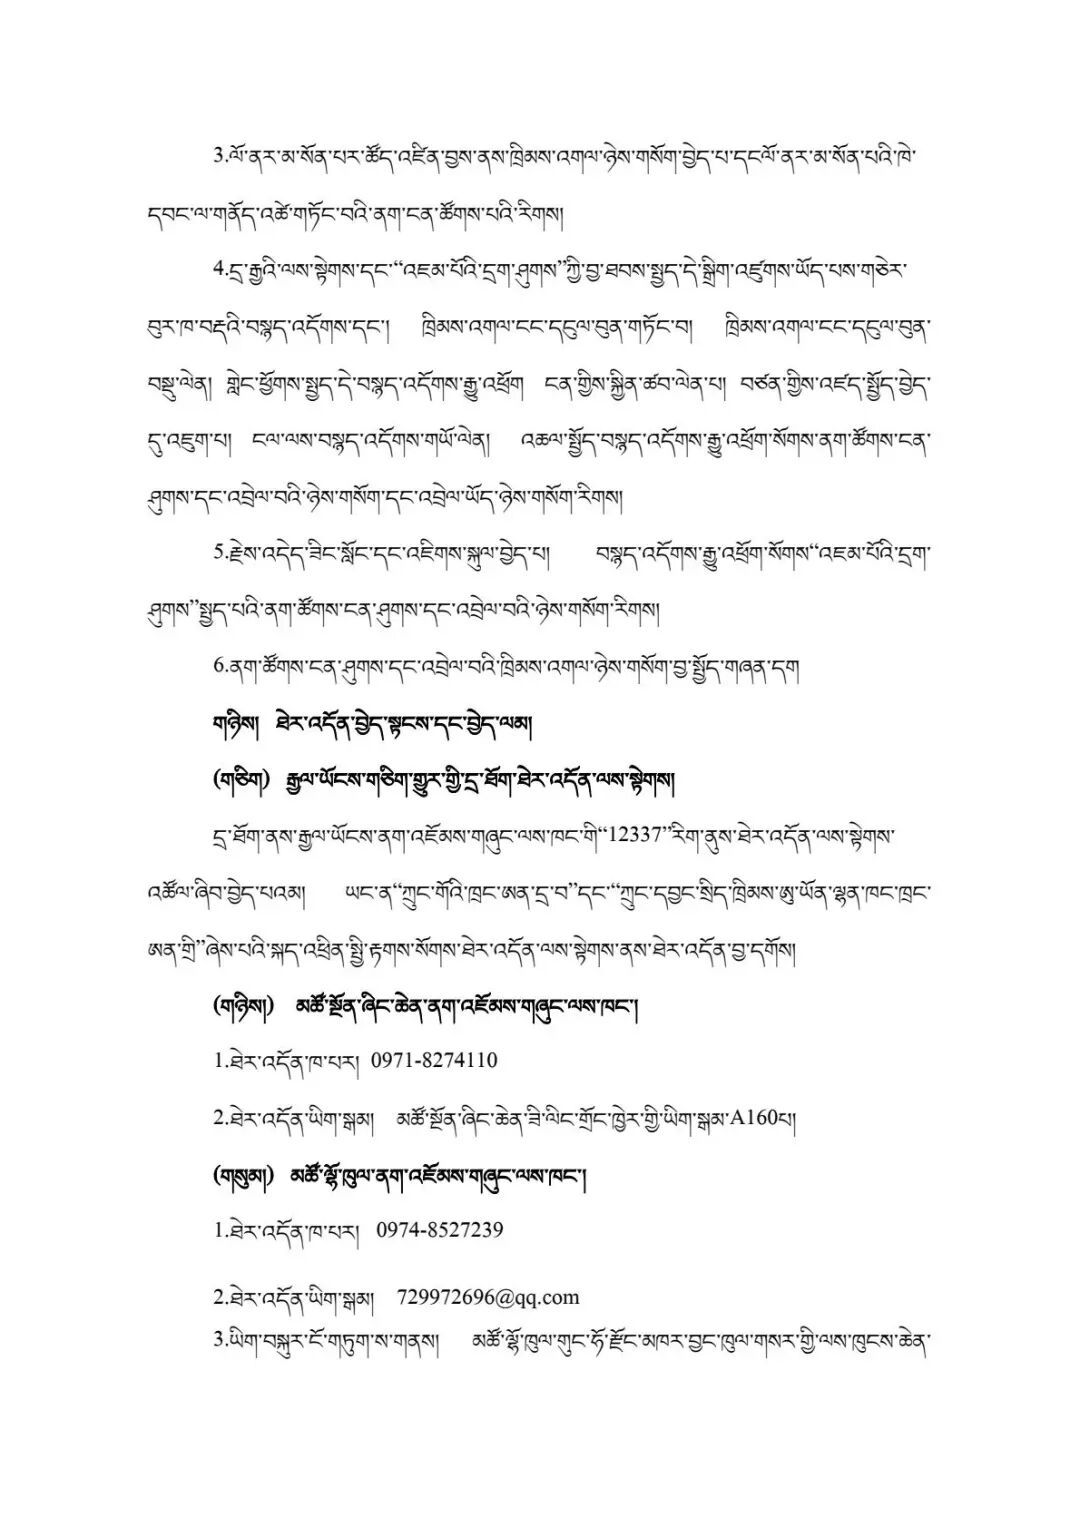 3.ལོ་ནར་མ་སོན་པར་ཚོད་འཛིན་བྱས་ནས་ཁྲིམས་འགལ་ཉེས་གསོག་བྱེད་པ་དངལོ་ནར་མ་སོན་པའི་ཁེ་
དབང་ལ་གནོད་འཚེ་གཏོང་བའི་ནག་ངན་ཚོགས་པའི་རིགས།
4.དྲ་རྒྱའི་ལས་སྟེགས་དང་“འཇམ་པོའི་དྲག་ཤུགས”ཀྱི་བྱ་ཐབས་སྤྱད་དེ་སྒྲིག་འཛུགས་ཡོད་པས་གཅེར་
བུར་ཁ་བརྡའི་བསྙད་འདོགས་དང་། ཁྲིམས་འགལ་ངང་དངུལ་བུན་གཏོང་བ། ཁྲིམས་འགལ་ངང་དངུལ་བུན་
བསྡུ་ལེན། གླེང་ཕྱོགས་སྤྱད་དེ་བསྙད་འདོགས་རྒྱུ་འཕྲོག ངན་གྱིས་སྐྱིན་ཚབ་ལེན་པ། བཙན་གྱིས་འཛད་སྤྱོད་བྱེད་
དུ་འཇུག་པ། ངལ་ལས་བསྙད་འདོགས་གཡོ་ལེན། འཆལ་སྤྱོད་བསྙད་འདོགས་རྒྱུ་འཕྲོག་སོགས་ནག་ཚོགས་ངན་
ཤུགས་དང་འབྲེལ་བའི་ཉེས་གསོག་དང་འབྲེལ་ཡོད་ཉེས་གསོག་རིགས།
5.རྗེས་འདེད་ཟིང་སློང་དང་འཇིགས་སྐུལ་བྱེད་པ། བསྙད་འདོགས་རྒྱུ་འཕྲོག་སོགས“འཇམ་པོའི་དྲག་
ཤུགས”སྤྱད་པའི་ནག་ཚོགས་ངན་ཤུགས་དང་འབྲེལ་བའི་ཉེས་གསོག་རིགས།
6.ནག་ཚོགས་ངན་ཤུགས་དང་འབྲེལ་བའི་ཁྲིམས་འགལ་ཉེས་གསོག་བྱ་སྤྱོད་གཞན་དག
གཉིས། ཐེར་འདོན་བྱེད་སྟངས་དང་བྱེད་ལམ།
(གཅིག) རྒྱལ་ཡོངས་གཅིག་གྱུར་གྱི་དྲ་ཐོག་ཐེར་འདོན་ལས་སྟེགས།
དྲ་ཐོག་ནས་རྒྱལ་ཡོངས་ནག་འཇོམས་གཞུང་ལས་ཁང་གི“12337”རིག་ནུས་ཐེར་འདོན་ལས་སྟེགས་
འཚོལ་ཞིབ་བྱེད་པའམ། ཡང་ན“ཀྲུང་གོའི་ཁྲང་ཨན་དྲ་བ”དང་“ཀྲུང་དབྱང་སྲིད་ཁྲིམས་ཨུ་ཡོན་ལྷན་ཁང་ཁྲང་
ཨན་གྲི”ཞེས་པའི་སྐད་འཕྲིན་སྤྱི་རྟགས་སོགས་ཐེར་འདོན་ལས་སྟེགས་ནས་ཐེར་འདོན་བྱ་དགོས།
(གཉིས།) མཚོ་སྔོན་ཞིང་ཆེན་ནག་འཇོམས་གཞུང་ལས་ཁང་།
1.ཐེར་འདོན་ཁ་པར། 0971-8274110
2.ཐེར་འདོན་ཡིག་སྒམ། མཚོ་སྔོན་ཞིང་ཆེན་ཟི་ལིང་གྲོང་ཁྱེར་གྱི་ཡིག་སྒམ་A160པ།
(གསུམ།) མཚོ་ལྷོ་ཁུལ་ནག་འཇོམས་གཞུང་ལས་ཁང་།
1.ཐེར་འདོན་ཁ་པར། 0974-8527239
2.ཐེར་འདོན་ཡིག་སྒམ། 729972696@qq.com
3.ཡིག་བསྐུར་ངོ་གཏུག་ས་གནས། མཚོ་ལྷོ་ཁུལ་གུང་ཧོ་རྫོང་མཁར་བྱང་ཁུལ་གསར་གྱི་ལས་ཁུངས་ཆེན་